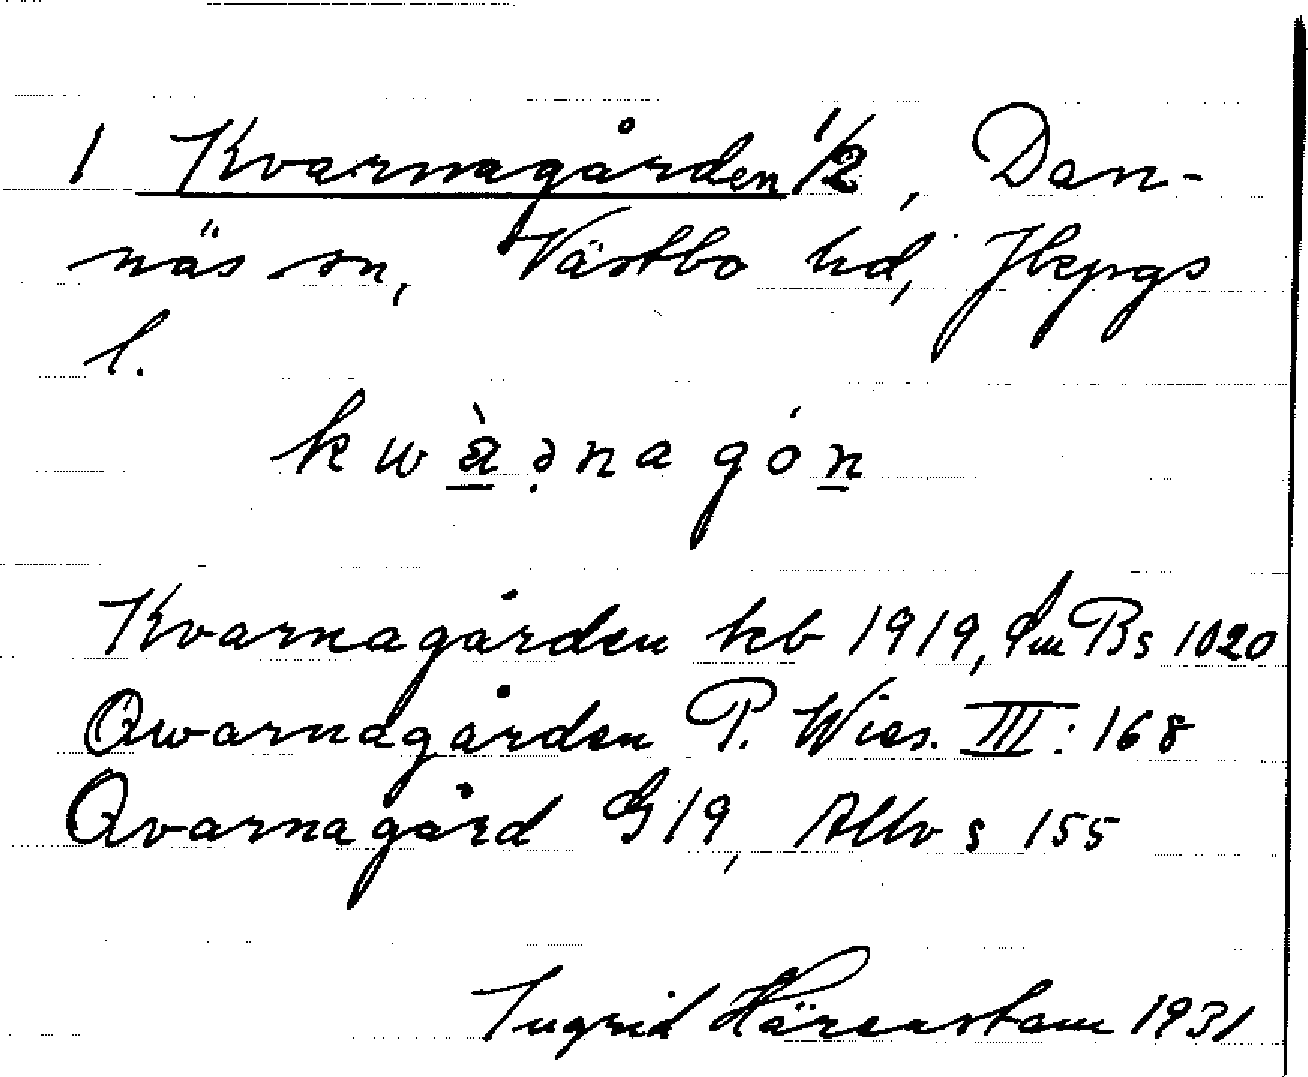 1 Kvarnagården 1/2, Dan-
näs sn, Västbo hd, Jkpgs
l.
kwàạ̈rnagón
Kvarnagården kb 1919, Bs 1020
Qwarnagården P. Wies. III:168
Qvarnagård G19, Allv s 155
Ingrid Härenstam 1931